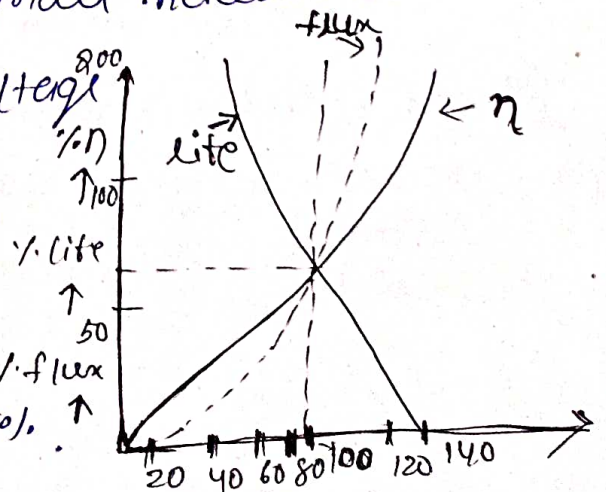 flux
200
ltage
%η
100
life
η
% life
50
%.flux
%.
20 40 60 80 100 120 140